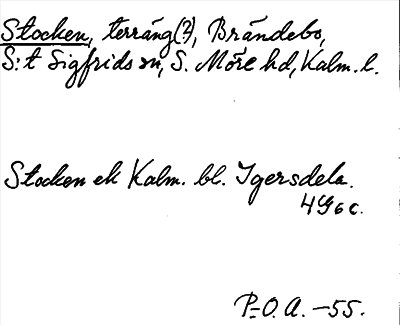 Stocken, terräng(?), Brändebo,
S:t Sigfrids sn, S. Möre hd, Kalm. l.
Stocken ek Kalm. bl. Igersdela.
4G6c.
P-O.A. -55.